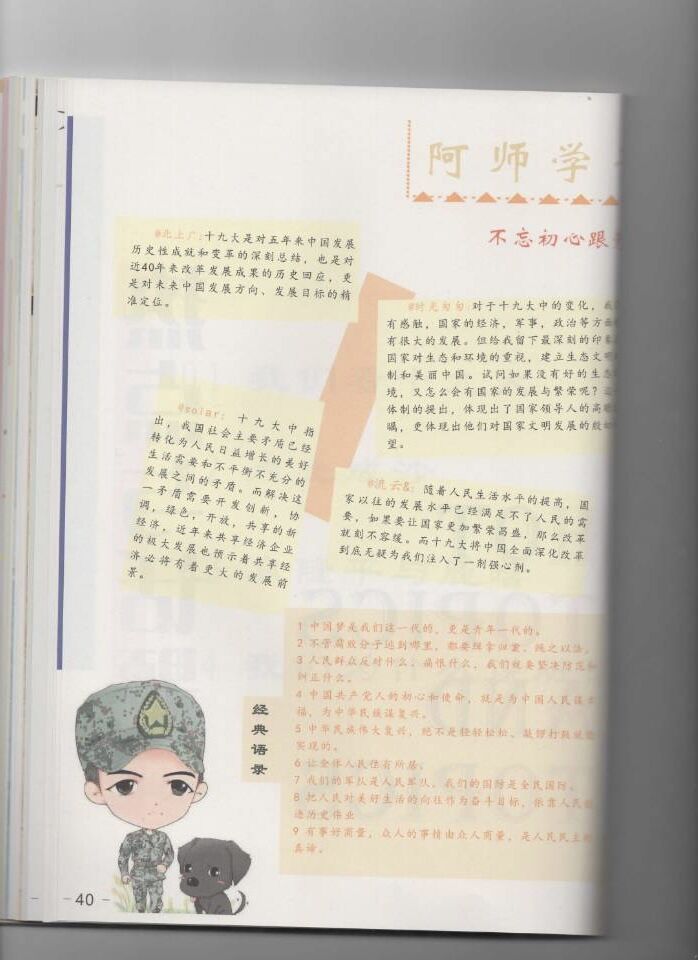 阿师学
不忘初心跟
@北上广:十九大是对五年来中国发展
历史性成就和变革的深刻总结，也是对
近40年来改革发展成果的历史回应，更
是对未来中国发展方向、发展目标的精
准定位。
@时光匆匆:对于十九大中的变化，我
有感触，国家的经济，军事，政治等方面
有很大的发展。但给我留下最深刻的印
国家对生态和环境的重视，建立生态文明
制和美丽中国。试问如果没有好的生态
境，又怎么会有国家的发展与繁荣呢？
体制的提出，体现出了国家领导人的高瞻
瞩，更体现出他们对国家文明发展的殷切
望。
@solar: 十九大中指
出，我国社会主要矛盾已经
转化为人民日益增长的美好
生活需要和不平衡不充分的
发展之间的矛盾。而解决这
一矛盾需要开发创新，协
调，绿色，开放，共享的新
经济，近年来共享经济企业
的极大发展也预示着共享经
济必将有着更大的发展前
景。
@流云&: 随着人民生活水平的提高，国
家以往的发展水平已经满足不了人民的需
要，如果要让国家更加繁荣昌盛，那么改革
就刻不容缓。而十九大将中国全面深化改革
到底无疑为我们注入了一剂强心剂。
经典语录
1 中国梦是我们这一代的，更是青年一代的。
2 不管腐败分子逃到哪里，都要缉拿归案、绳之以法。
3 人民群众反对什么、痛恨什么，我们就要坚决防范和
纠正什么。
4 中国共产党人的初心和使命，就是为中国人民谋幸
福，为中华民族谋复兴。
5 中华民族伟大复兴，绝不是轻轻松松、敲锣打鼓就能
实现的。
6 让全体人民住有所居。
7 我们的军队是人民军队，我们的国防是全民国防。
8 把人民对美好生活的向往作为奋斗目标，依靠人民创
造历史伟业
9 有事好商量，众人的事情由众人商量，是人民民主的
真谛。
40